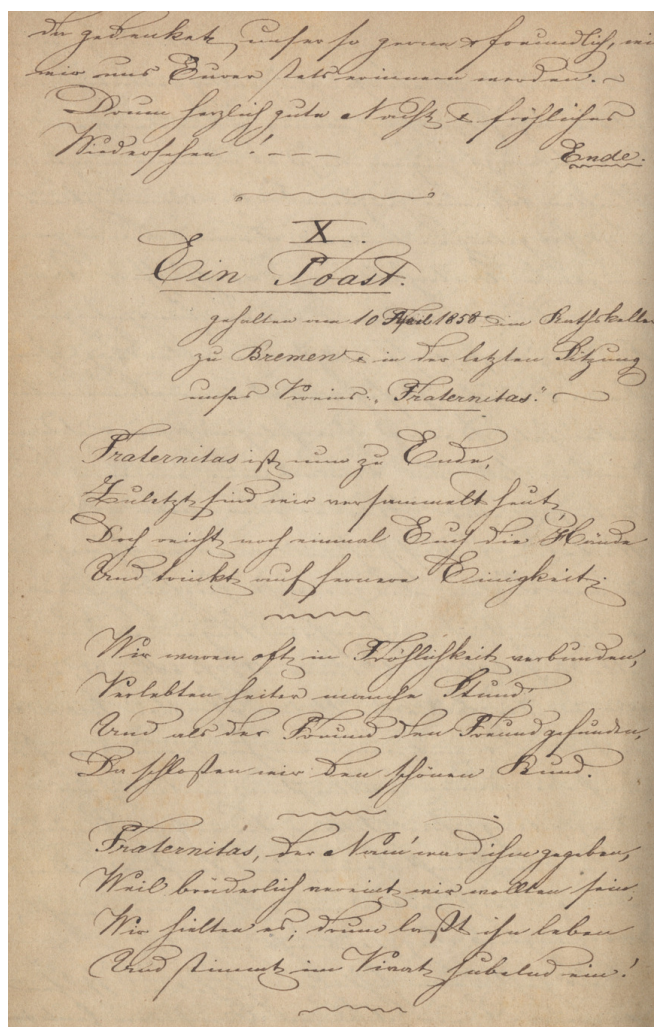 da gedenket unser so gerne & freundlich, wie
wir uns Eurer stets erinnern werden. –
Drum herzlich gute Nacht & fröhliches
Wiedersehen! – – –
Ende.
X.
Ein Toast.
gehalten am 10 April 1858 im Rathskeller
zu Bremen in der letzten Sitzung
unsres Vereins: „Fraternitas." –
Fraternitas ist nun zu Ende,
Zuletzt sind wir versammelt heut,
Doch reicht noch einmal Euch die Hände
Und trinkt auf fernere Einigkeit.
Wir waren oft in Fröhlichkeit verbunden,
Verlebten heiter manche Stund'
Und als der Freund den Freund gefunden,
Da schloßen wir den schönen Bund.
Fraternitas, der Nam' ward ihm gegeben,
Weil brüderlich vereint wir wollten sein,
Wir hielten es; drum laßt ihn leben
Und stimmt im Vivat jubelnd ein!